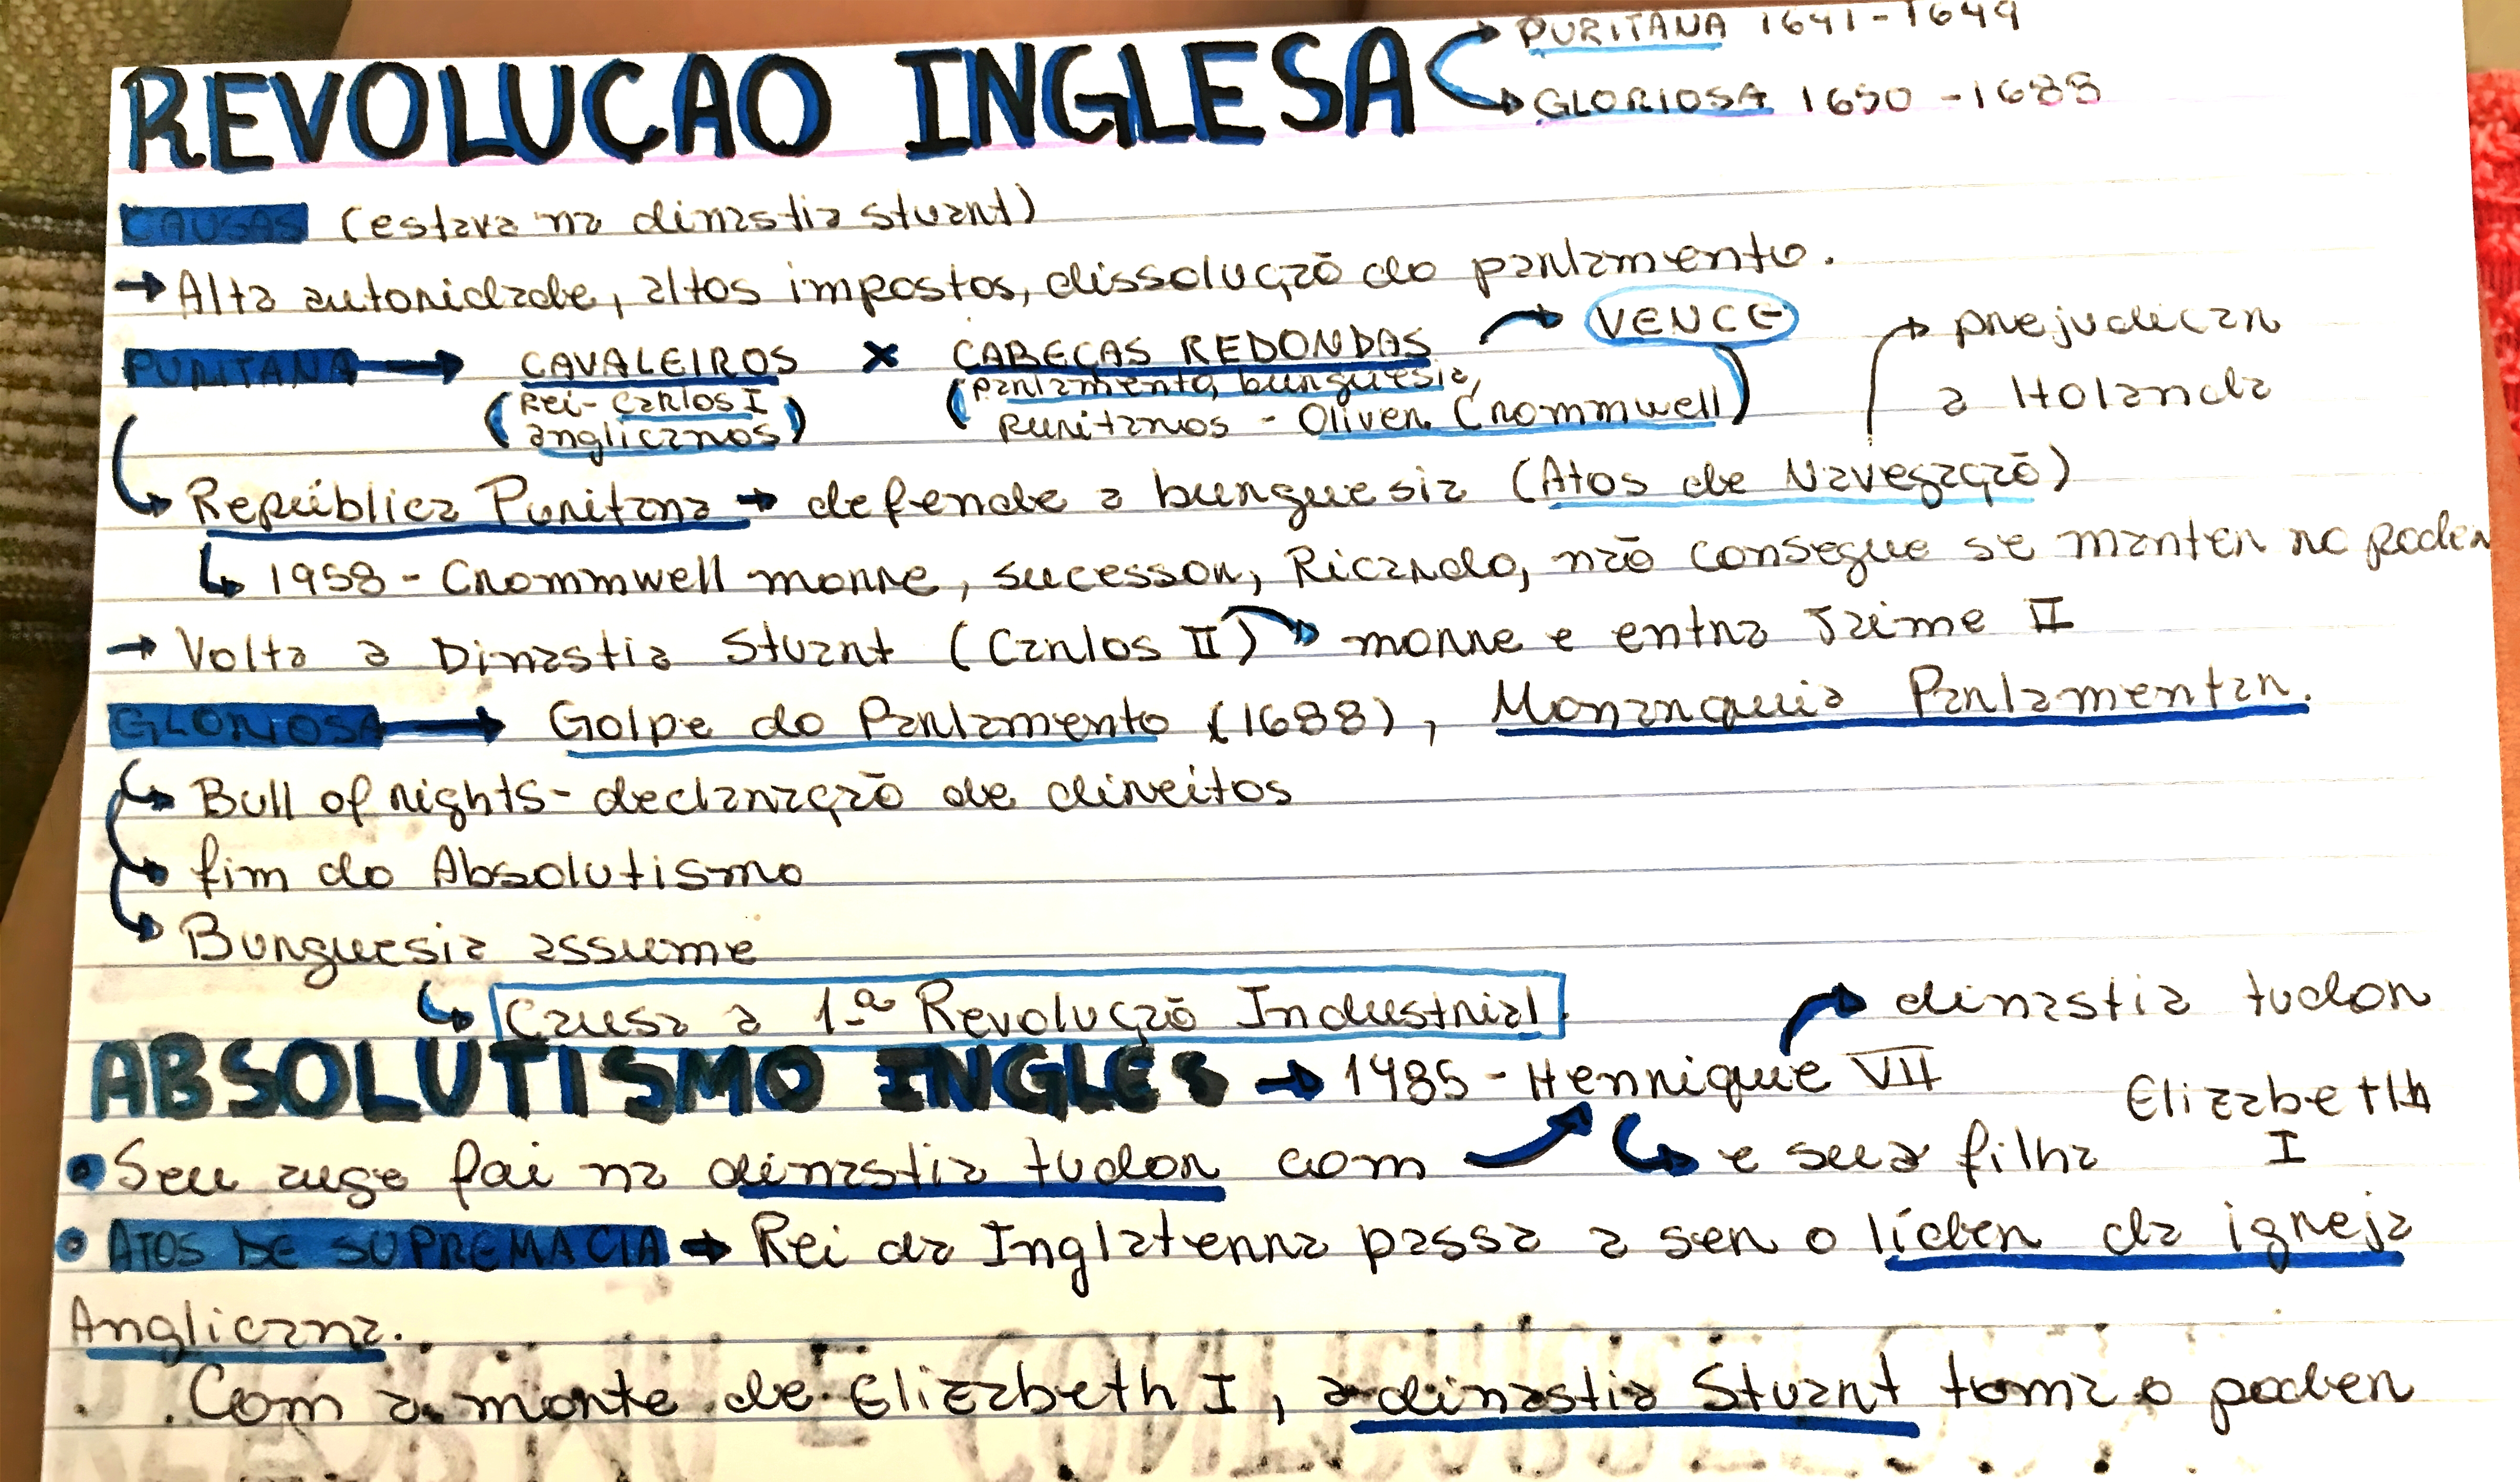 REVOLUÇAO INGLESA
PURITANA 1641-1649
GLORIOSA 1650-1688
CAUSAS (estava na dinastia stuart)
→ Alta autoridade, altos impostos, dissolução do parlamento.
PURITANA → CAVALEIROS X CABEÇAS REDONDAS → VENCE
(Rei-Carlos I anglicanos)
(parlamento, burguesia, puritanos - Oliver Crommwell)
→ prejudicar a Holanda
↳ República Puritana → defende a burguesia (Atos de Navegação)
↳ 1958 - Crommwell morre, sucessor, Ricardo, não consegue se manter no poder
→ Volta a Dinastia Stuart (Carlos II) → morre e entra Jaime II
GLORIOSA → Golpe do Parlamento (1688), Monarquia Parlamentar.
↳ Bull of rights - declaração de direitos
↳ fim do Absolutismo
↳ Burguesia assume
↳ Causa a 1ª Revolução Industrial.
ABSOLUTISMO INGLES → 1485 - Henrique VII → dinastia tudor
↳ e sua filha Elizabeth I
• Seu auge foi na dinastia tudor com
• ATOS DE SUPREMACIA → Rei da Inglaterra passa a ser o líder da igreja
Anglicana.
. Com a morte de Elizabeth I, a dinastia Stuart toma o poder